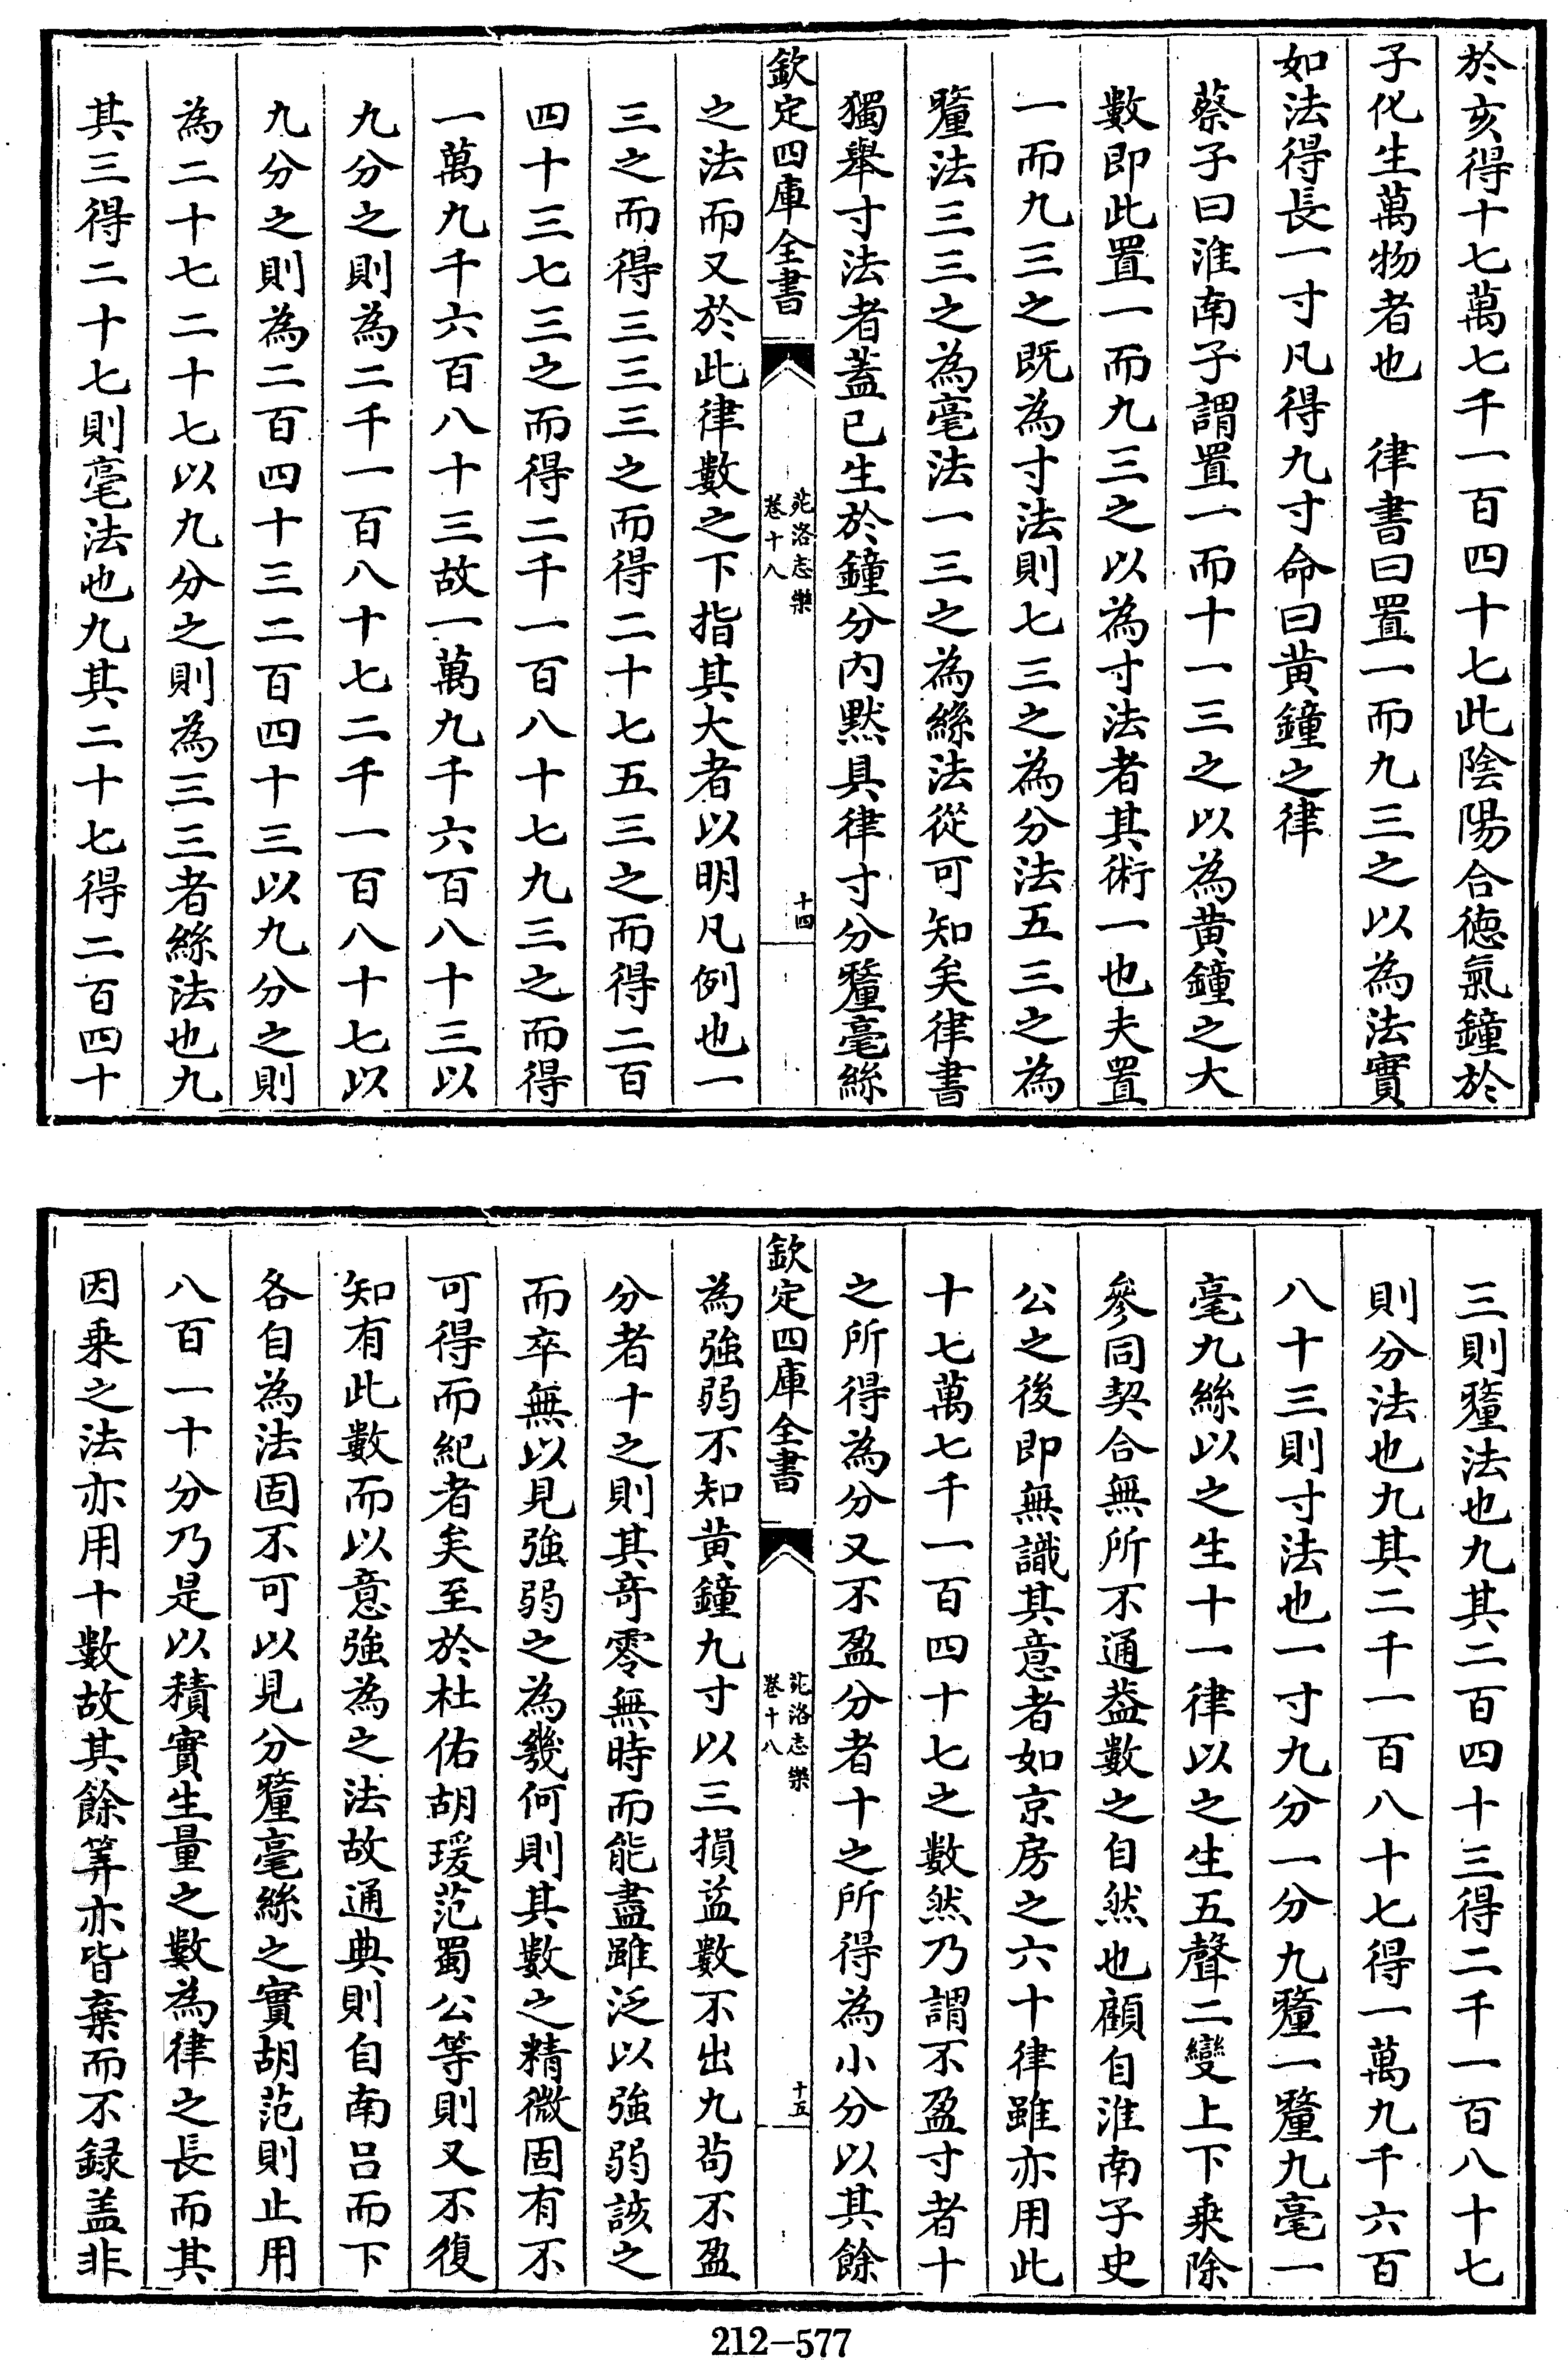 於亥得十七萬七千一百四十七此陰陽合德氣鐘於
子化生萬物者也　律書曰置一而九三之以為法實
如法得長一寸凡得九寸命曰黄鐘之律
蔡子曰淮南子謂置一而十一三之以為黄鐘之大
數即此置一而九三之以為寸法者其術一也夫置
一而九三之既為寸法則七三之為分法五三之為
釐法三三之為毫法一三之為絲法從可知矣律書
獨舉寸法者蓋已生於鐘分内黙具律寸分釐毫絲
欽定四庫全書
苑洛志樂
卷十八
十四
之法而又於此律數之下指其大者以明凡例也一
三之而得三三三之而得二十七五三之而得二百
四十三七三之而得二千一百八十七九三之而得
一萬九千六百八十三故一萬九千六百八十三以
九分之則為二千一百八十七二千一百八十七以
九分之則為二百四十三二百四十三以九分之則
為二十七二十七以九分之則為三三者絲法也九
其三得二十七則毫法也九其二十七得二百四十
三則釐法也九其二百四十三得二千一百八十七
則分法也九其二千一百八十七得一萬九千六百
八十三則寸法也一寸九分一分九釐一釐九毫一
毫九絲以之生十一律以之生五聲二變上下乗除
參同契合無所不通蓋數之自然也顧自淮南子史
公之後即無識其意者如京房之六十律雖亦用此
十七萬七千一百四十七之數然乃謂不盈寸者十
之所得為分又不盈分者十之所得為小分以其餘
欽定四庫全書
苑洛志樂
卷十八
十五
為強弱不知黄鐘九寸以三損益數不出九茍不盈
分者十之則其竒零無時而能盡雖泛以強弱該之
而卒無以見強弱之為幾何則其數之精微固有不
可得而紀者矣至於杜佑胡瑗范蜀公等則又不復
知有此數而以意強為之法故通典則自南呂而下
各自為法固不可以見分釐毫絲之實胡范則止用
八百一十分乃是以積實生量之數為律之長而其
因乗之法亦用十數故其餘筭亦皆棄而不録盖非
212-577